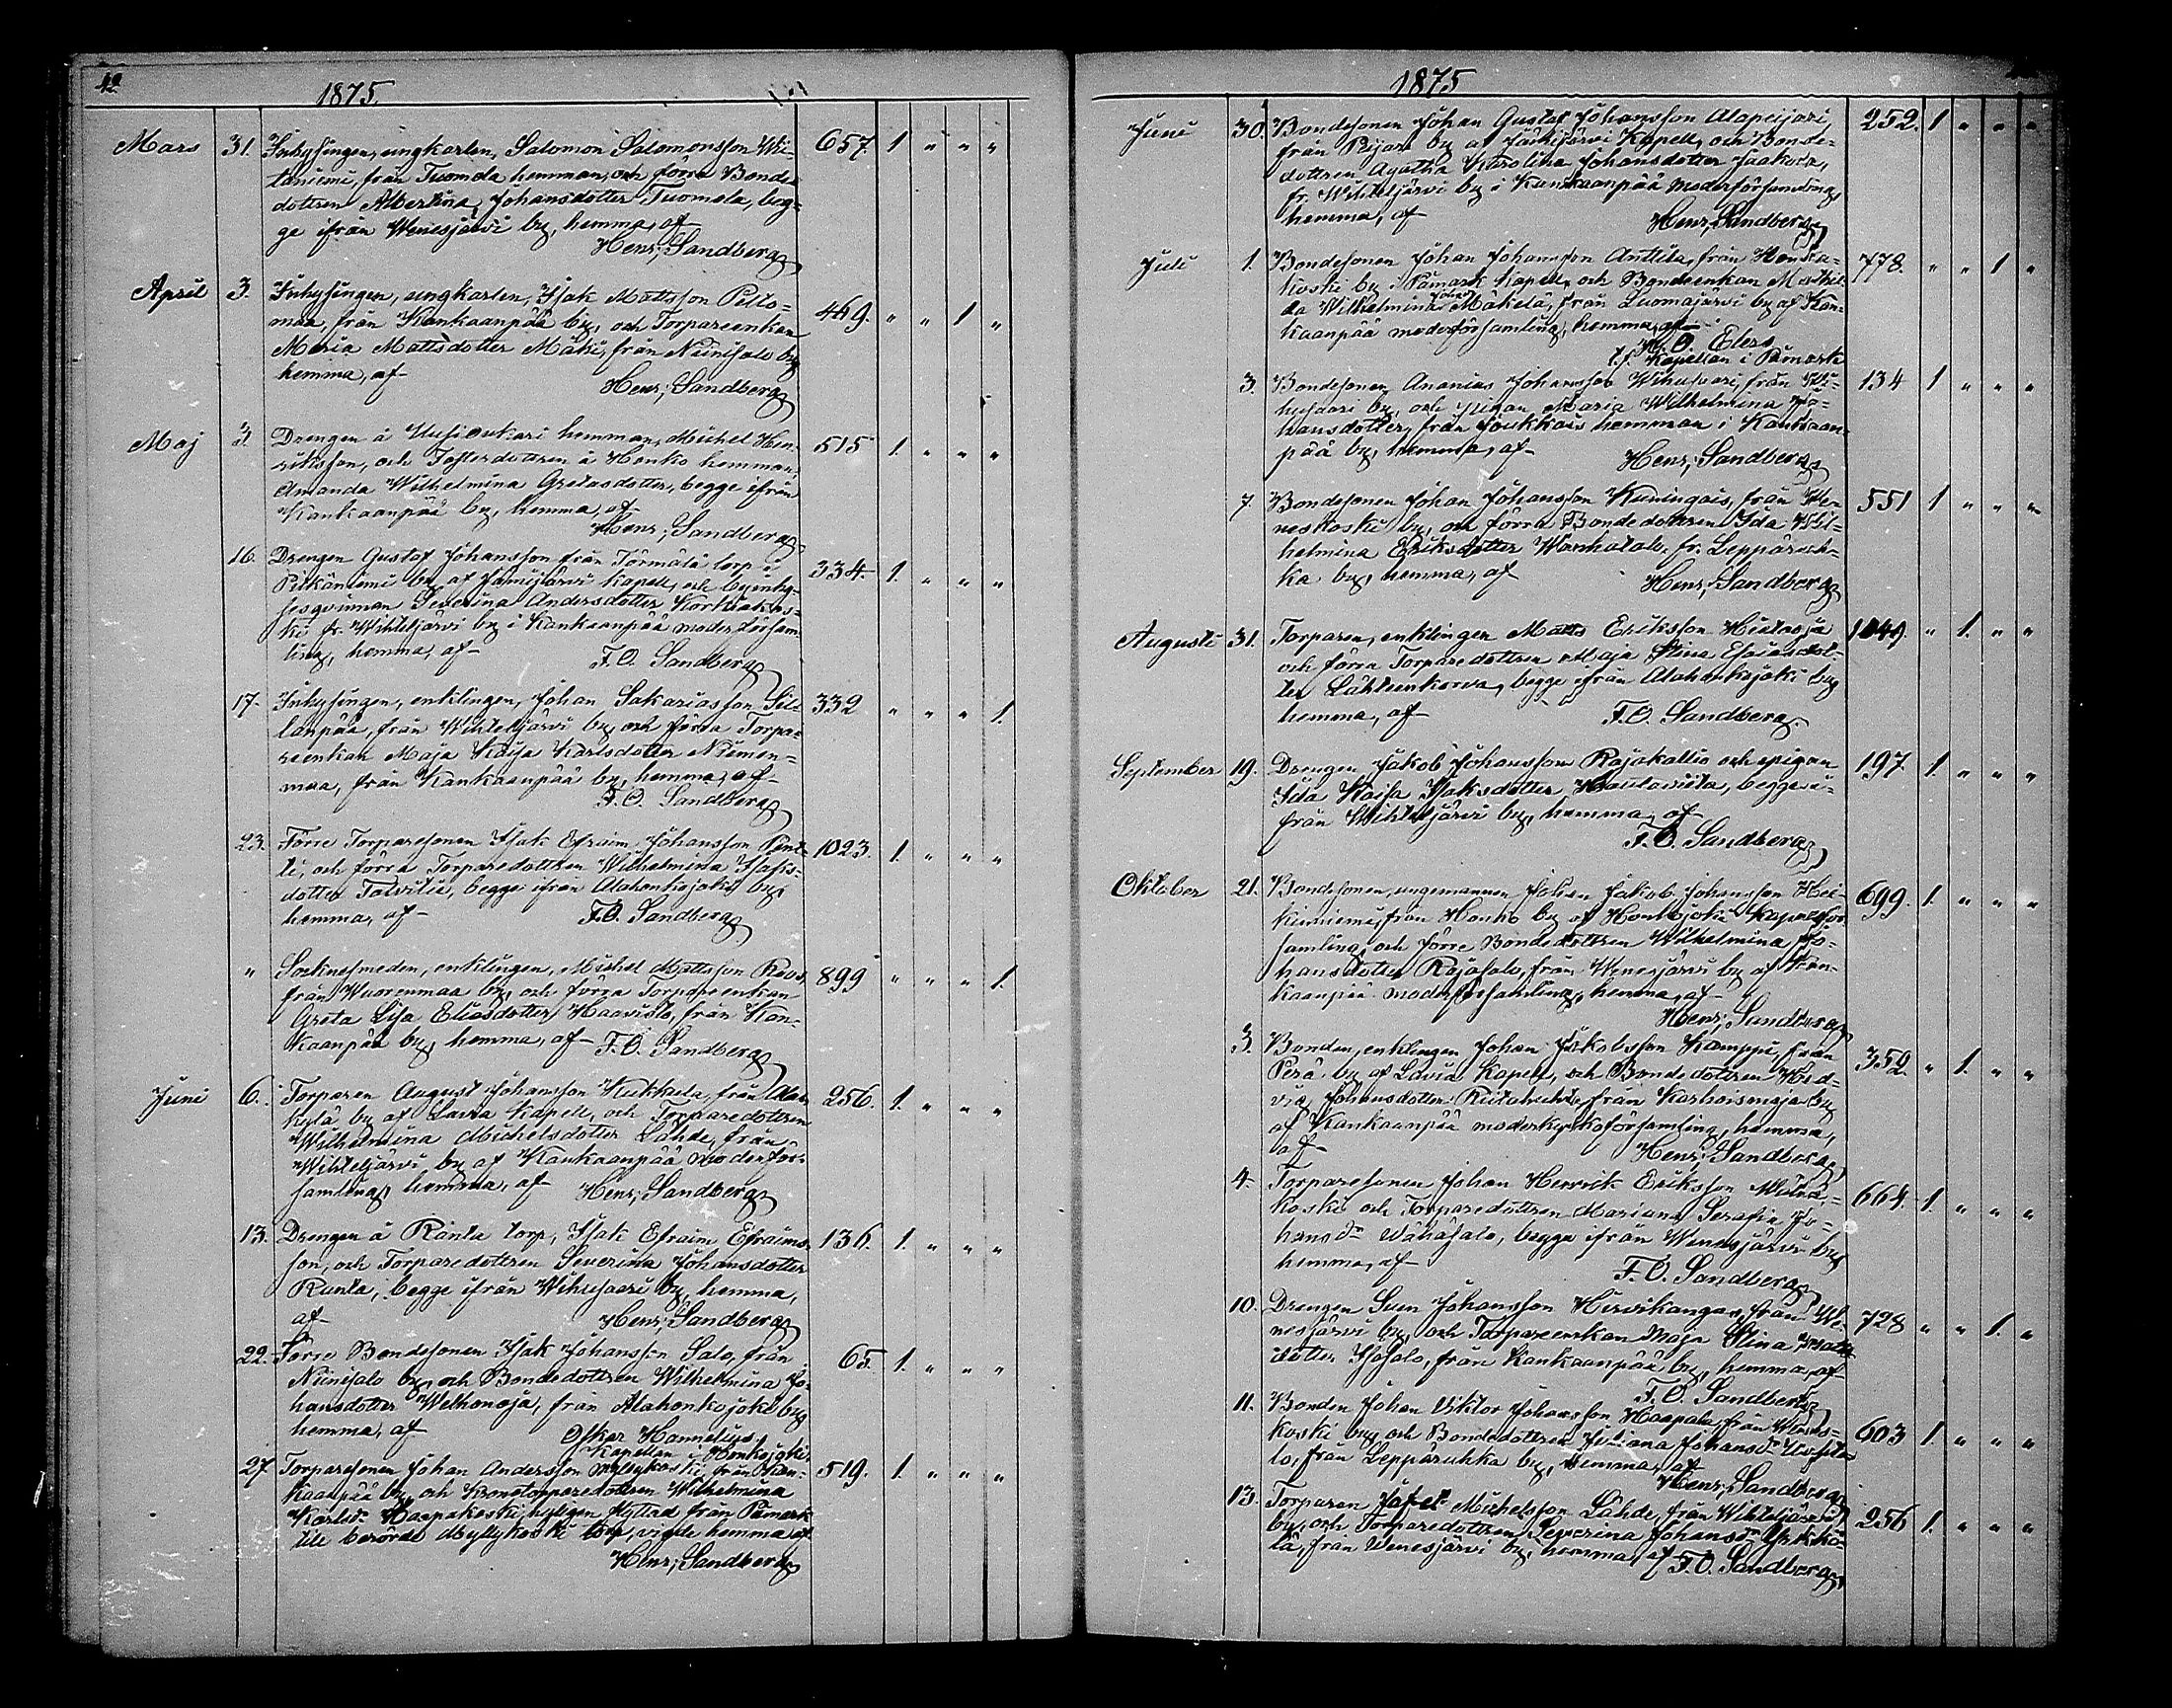 1875.
Mars 31. Inhysingen, ungkarlen, Salomon Salomonsson Wii- 657. 1. " " "
taniemi, från Tuomola hemman, och förra Bonde-
dottren Albertina Johansdotter Tuomola, beg-
ge ifrån Wenesjärvi by, hemma, af
Henr; Sandberg
April 3. Inhysingen, ungkarlen, Isak Mattsson Pelto- 469. " " 1 "
maa, från Kankaanpää by, och Torpareenkan
Maria Mattsdotter Mäki, från Niinisalo by
hemma, af
Henr; Sandberg
Maj 2. Drengen å Uusi Oukari hemman, Michel Hen- 515 1. " " "
riksson, och Fosterdottren å Honko hemman
Amanda Wilhelmina Gretasdotter, begge ifrån
Kankaanpää by, hemma, af
Henr; Sandberg
16. Drengen Gustaf Johansson från Törmälä torp i 334. 1. " " "
Pitkäniemi by af Jämijärvi kapell, och
Severina Andersdotter Korkiakos-
ki fr. Wihteljärvi by i Kankaanpää moderförsam
ling, hemma, af
F.O. Sandberg
17. Inhysingen, enklingen, Johan Sakariasson Sil- 332 " " " 1.
lanpää, från Wihteljärvi by, och förra Torpa-
reenkan Maja Kaisa Karlsdotter Niemen-
maa, från Kankaanpää by, hemma, af
F.O. Sandberg
23. Förre Torparesonen Isak Efraim Johansson Pent- 1023. 1. " " "
ti, och förra Torparedottren Wilhelmina Isaks-
dotter begge ifrån Alahonkojoki by,
hemma, af
F.O. Sandberg
" Socknesmeden, enklingen, Michel Mattsson Roos, 899 " " " 1.
från Wuorenmaa by, och förra Torpareenkan
Greta Lisa Eliasdotter Haavisto, från Kan-
kaanpää by, hemma, af F.O. Sandberg
Juni 6. Torparen August Johansson Kukkula, från 256. 1. " " "
kylä by af Lavia Kapell, och Torparedottren
Wilhelmina Michelsdotter Lähde, från
Wihteljärvi by af Kankaanpää moderför-
samling, hemma, af Henr; Sandberg
13. Drengen å Ranta torp, Isak Efraim Efraims- 136. 1. " " "
son, och Torparedottren Severina Johansdotter
Ranta, begge ifrån Wihusaari by, hemma,
af
Henr; Sandberg
22. Förre Bondesonen Isak Johansson Salo, från 65. 1. " " "
Niinisalo by, och Bondedottren Wilhelmina Jo-
hansdotter Welhonoja, från Alahonkojoki by
hemma, af
Oskar Hannelius.
Kapellan i Honkojoki.
27 Torparesonen Johan Andersson Myllykoski, från Kan- 519. 1. " " "
kaanpää by, och Kronotorparedottren Wilhelmina
Karlsdr Haapakoski, flyttad från Påmark
till berörde Myllykoski torp, vigde hemma af
Henr; Sandberg
1875
Juni 30. Bondesonen Johan Gustaf Johansson Alapeijari 252. 1. " " "
från Peijari by af Jämijärvi Kapell, och Bonde-
dottren Agatha Karolina Johansdotter Jaakola,
fr. Wihteljärvi by i Kankaanpää moderförsamling
hemma, af
Henr; Sandberg
Juli 1. Bondesonen Johan Johansson Anttila, från 778. " " 1 "
koski by i Påmark Kapell, och Bondeenkan Mathil-
da Wilhelmina Mäkelä, från Luomajärvi by af Kan-
kaanpää moderförsamling, hemma, af
O. Elers
t.f. Kapellan i Påmark
3. Bondesonen Ananias Johansson Wihusaari, från Wi- 134 1. " " "
husaari by, och pigan Maria Wilhelmina Jo-
hansdotter, från hemman i Kankaan-
pää by, hemma, af
Henr; Sandberg
7. Bondesonen Johan Johansson Kuningas, från We- 551 1 " " "
neskoski by, och förra Bondedottren Ida Wil-
helmina Eriksdotter Wanhatalo, fr. Leppäruh-
ka by, hemma, af
Henr; Sandberg
Augusti 31. Torparen, enklingen Matts Eriksson Hietaoja 1049. " 1. " "
och förra Torparedottren Maja Stina Esaiasdot-
ter Lähteenkorva, begge ifrån Alahonkojoki by
hemma, af
F.O. Sandberg
September 19. Drengen Jakob Johansson Rajakallio och pigan 197. 1. " " "
Ida Kaisa Isaksdotter begge i-
från Wihteljärvi by, hemma, af
F.O. Sandberg
Oktober 21. Bondesonen, ungemannen Johan Jakob Johansson Hei- 699. 1. " " "
kinniemi, från Honko by af Honkojoki Kapellför
samling, och förre Bondedottren Wilhelmina Jo-
hansdotter Rajasalo, från Wenesjärvi by af Kan-
kaanpää moderförsamling, hemma, af
Henr; Sandberg
3. Bonden, enklingen Johan Jakobsson Kamppi, från 352. " 1. " "
Perä by af Lavia Kapell, och Bondedottren Hed-
vig Johansdotter från Karhoismaja by
af Kankaanpää moderkyrkoförsamling, hemma,
af
Henr; Sandberg
4. Torparesonen Johan Henrik Eriksson 664. 1. " " "
koski och Torparedottren Mariana Serafia Jo-
hansdr Wähäsalo, begge ifrån Wenesjärvi by
hemma, af
F.O. Sandberg
10. Drengen Johansson Hirvikangas, från We- 728 " " 1. "
nesjärvi by, och Torpareenkan Maja Stina Matts
dotter Isosalo, från Kankaanpää by, hemma, af
F.O. Sandberg
11. Bonden Johan Viktor Johansson Haapala, från Wenes- 603 1. " " "
koski by, och Bondedottren Juliana Johansdr
lo, från Leppäruhka by, hemma, af
Henr; Sandberg
13. Torparen Jafet Michelsson Lähde, från Wihteljärvi 256 1. " " "
by, och Torparedottren Severina Johansdr
lä, från Wenesjärvi by, hemma, af F.O. Sandberg